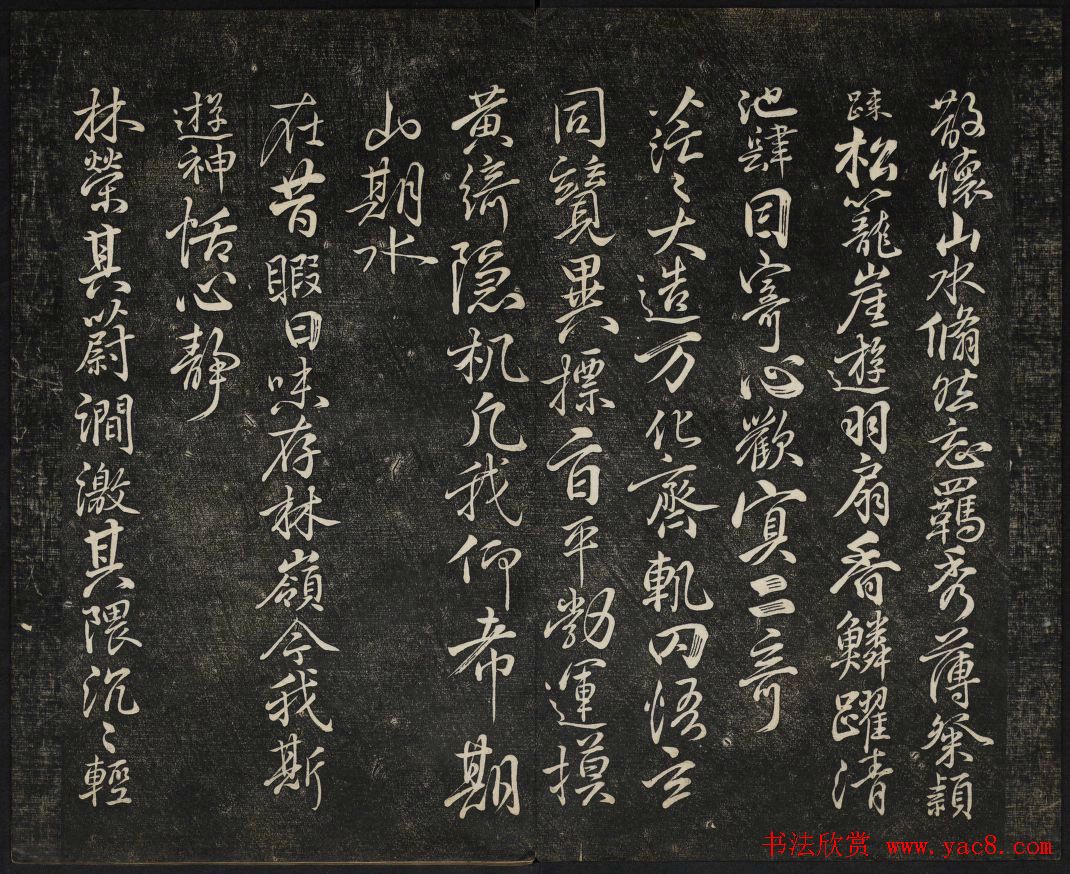 散懷山水翛然忘羈秀薄粲穎
疎松籠崖遊羽扇香鱗躍清
池肆目寄心歡冥二奇
茫〻大造万化齊軌罔悟玄
同競異標旨平勃運摸
黃綺隱机凡我仰希期
山期水
在昔暇日味存林嶺今我斯
遊神恬心靜
林榮其蔚澗激其隈汎〻輕
书法欣赏 www.yac8.com